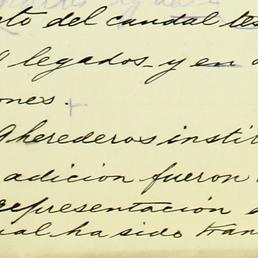 to del caudal tes
legados, y en
ones.
herederos instit
adicion fueron
representación
ial ha sido tran